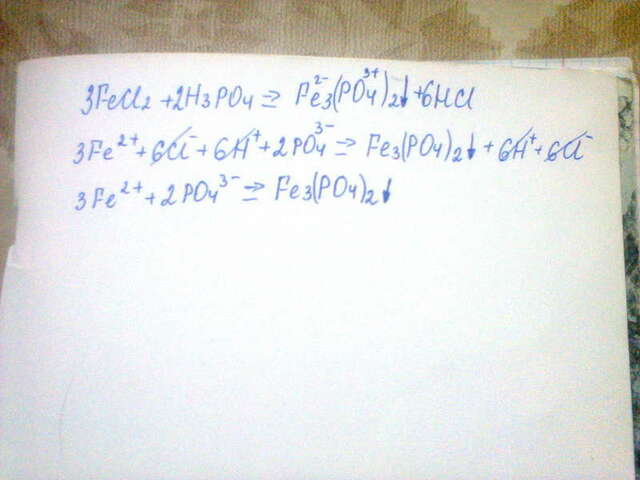 3FeCl₂ + 2H₃PO₄ ⇒ Fe₃²⁻(PO₄)₂³⁺↓ + 6HCl
3Fe²⁺ + 6Cl⁻ + 6H⁺ + 2PO₄³⁻ ⇒ Fe₃(PO₄)₂↓ + 6H⁺ + 6Cl⁻
3Fe²⁺ + 2PO₄³⁻ ⇒ Fe₃(PO₄)₂↓